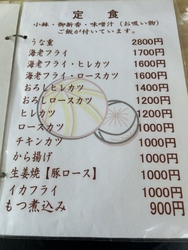 定食
小鉢・御新香・味噌汁（お吸い物）
ご飯が付いています。
うな重 2800円
海老フライ 1700円
海老フライ・ヒレカツ 1600円
海老フライ・ロースカツ 1600円
おろしヒレカツ 1400円
おろしロースカツ 1200円
ヒレカツ 1200円
ロースカツ 1000円
チキンカツ 1000円
から揚げ 1000円
生姜焼【豚ロース】 1000円
イカフライ 1000円
もつ煮込み 900円